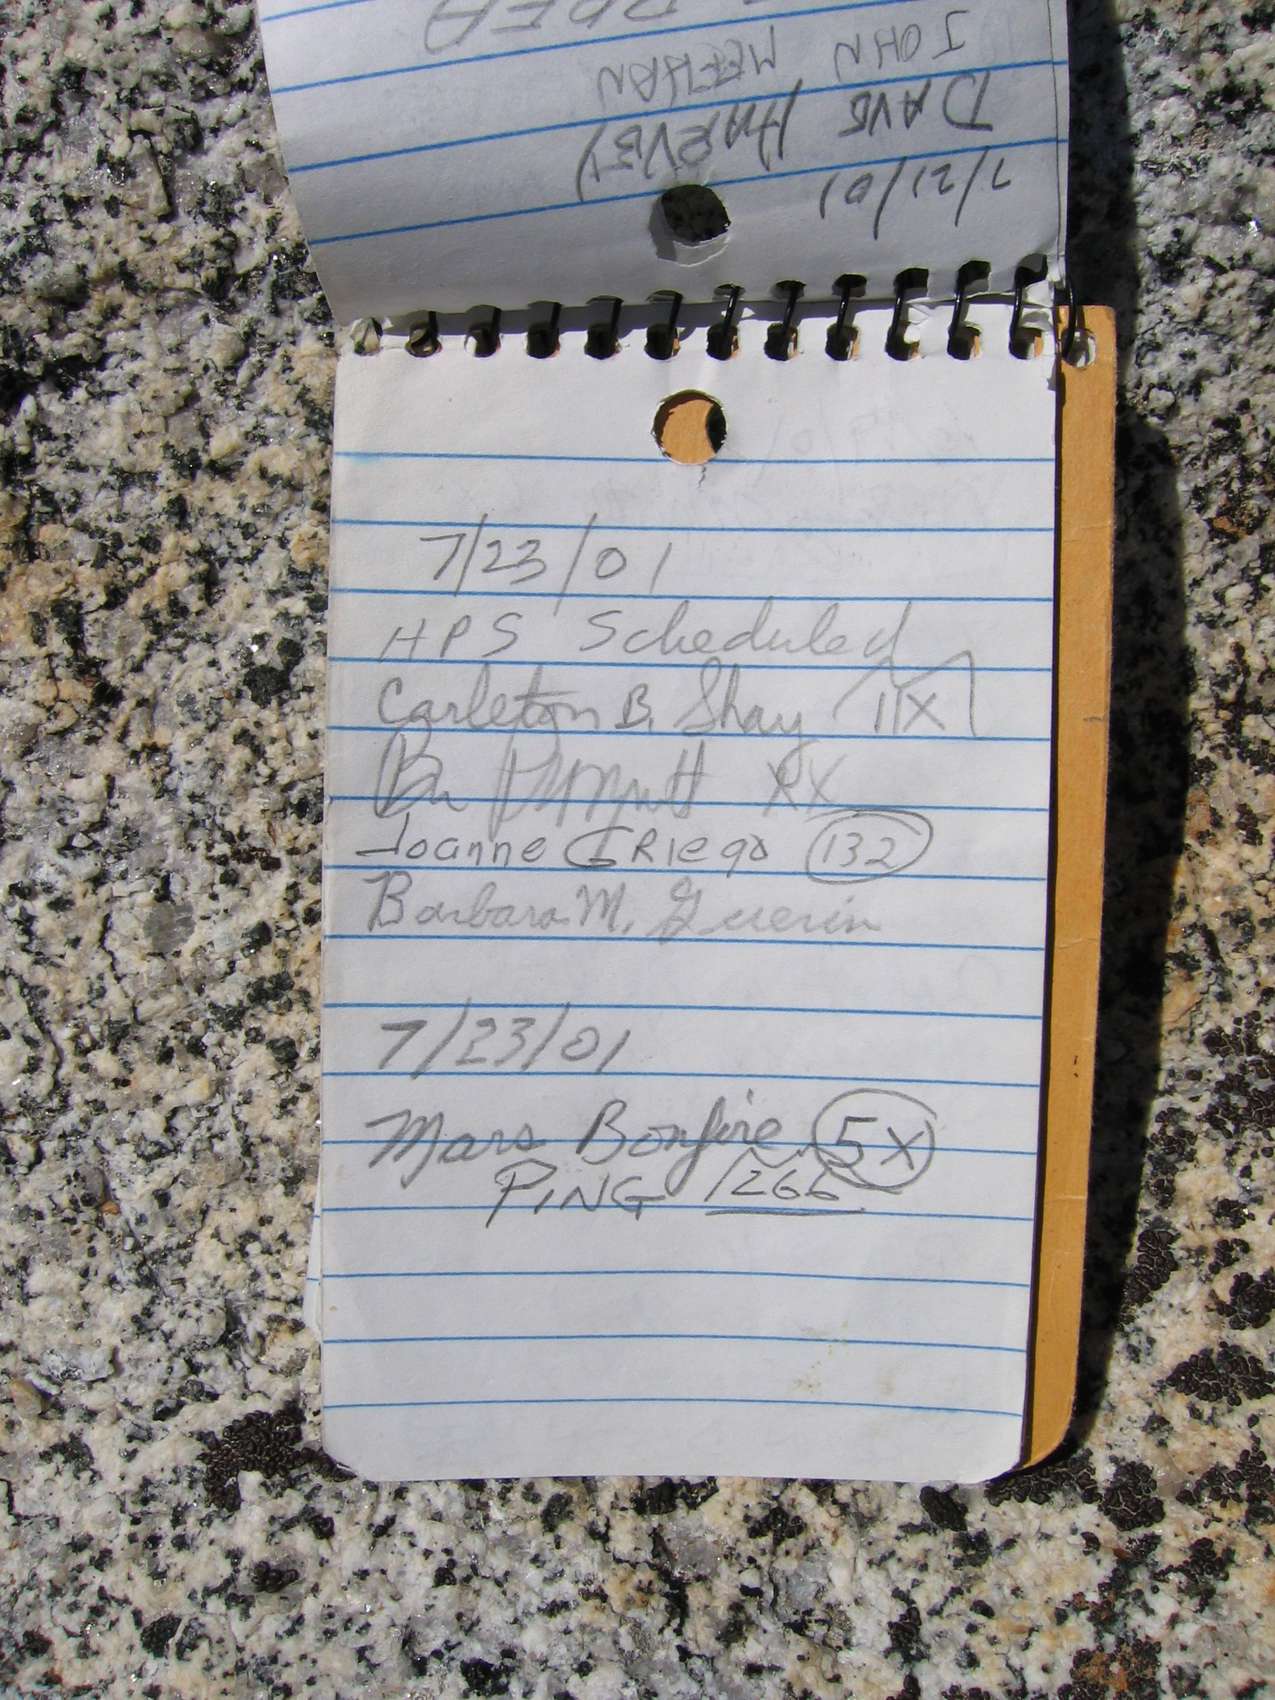 7/21/01
DAVE HARVEY
JOHN MEEHAN
7/23/01
HPS Scheduled
Carleton B. Shay 11X
Joanne GRiego 132
Barbara M. Guerin
7/23/01
Mars Bonfire 5X
PiNG 1266